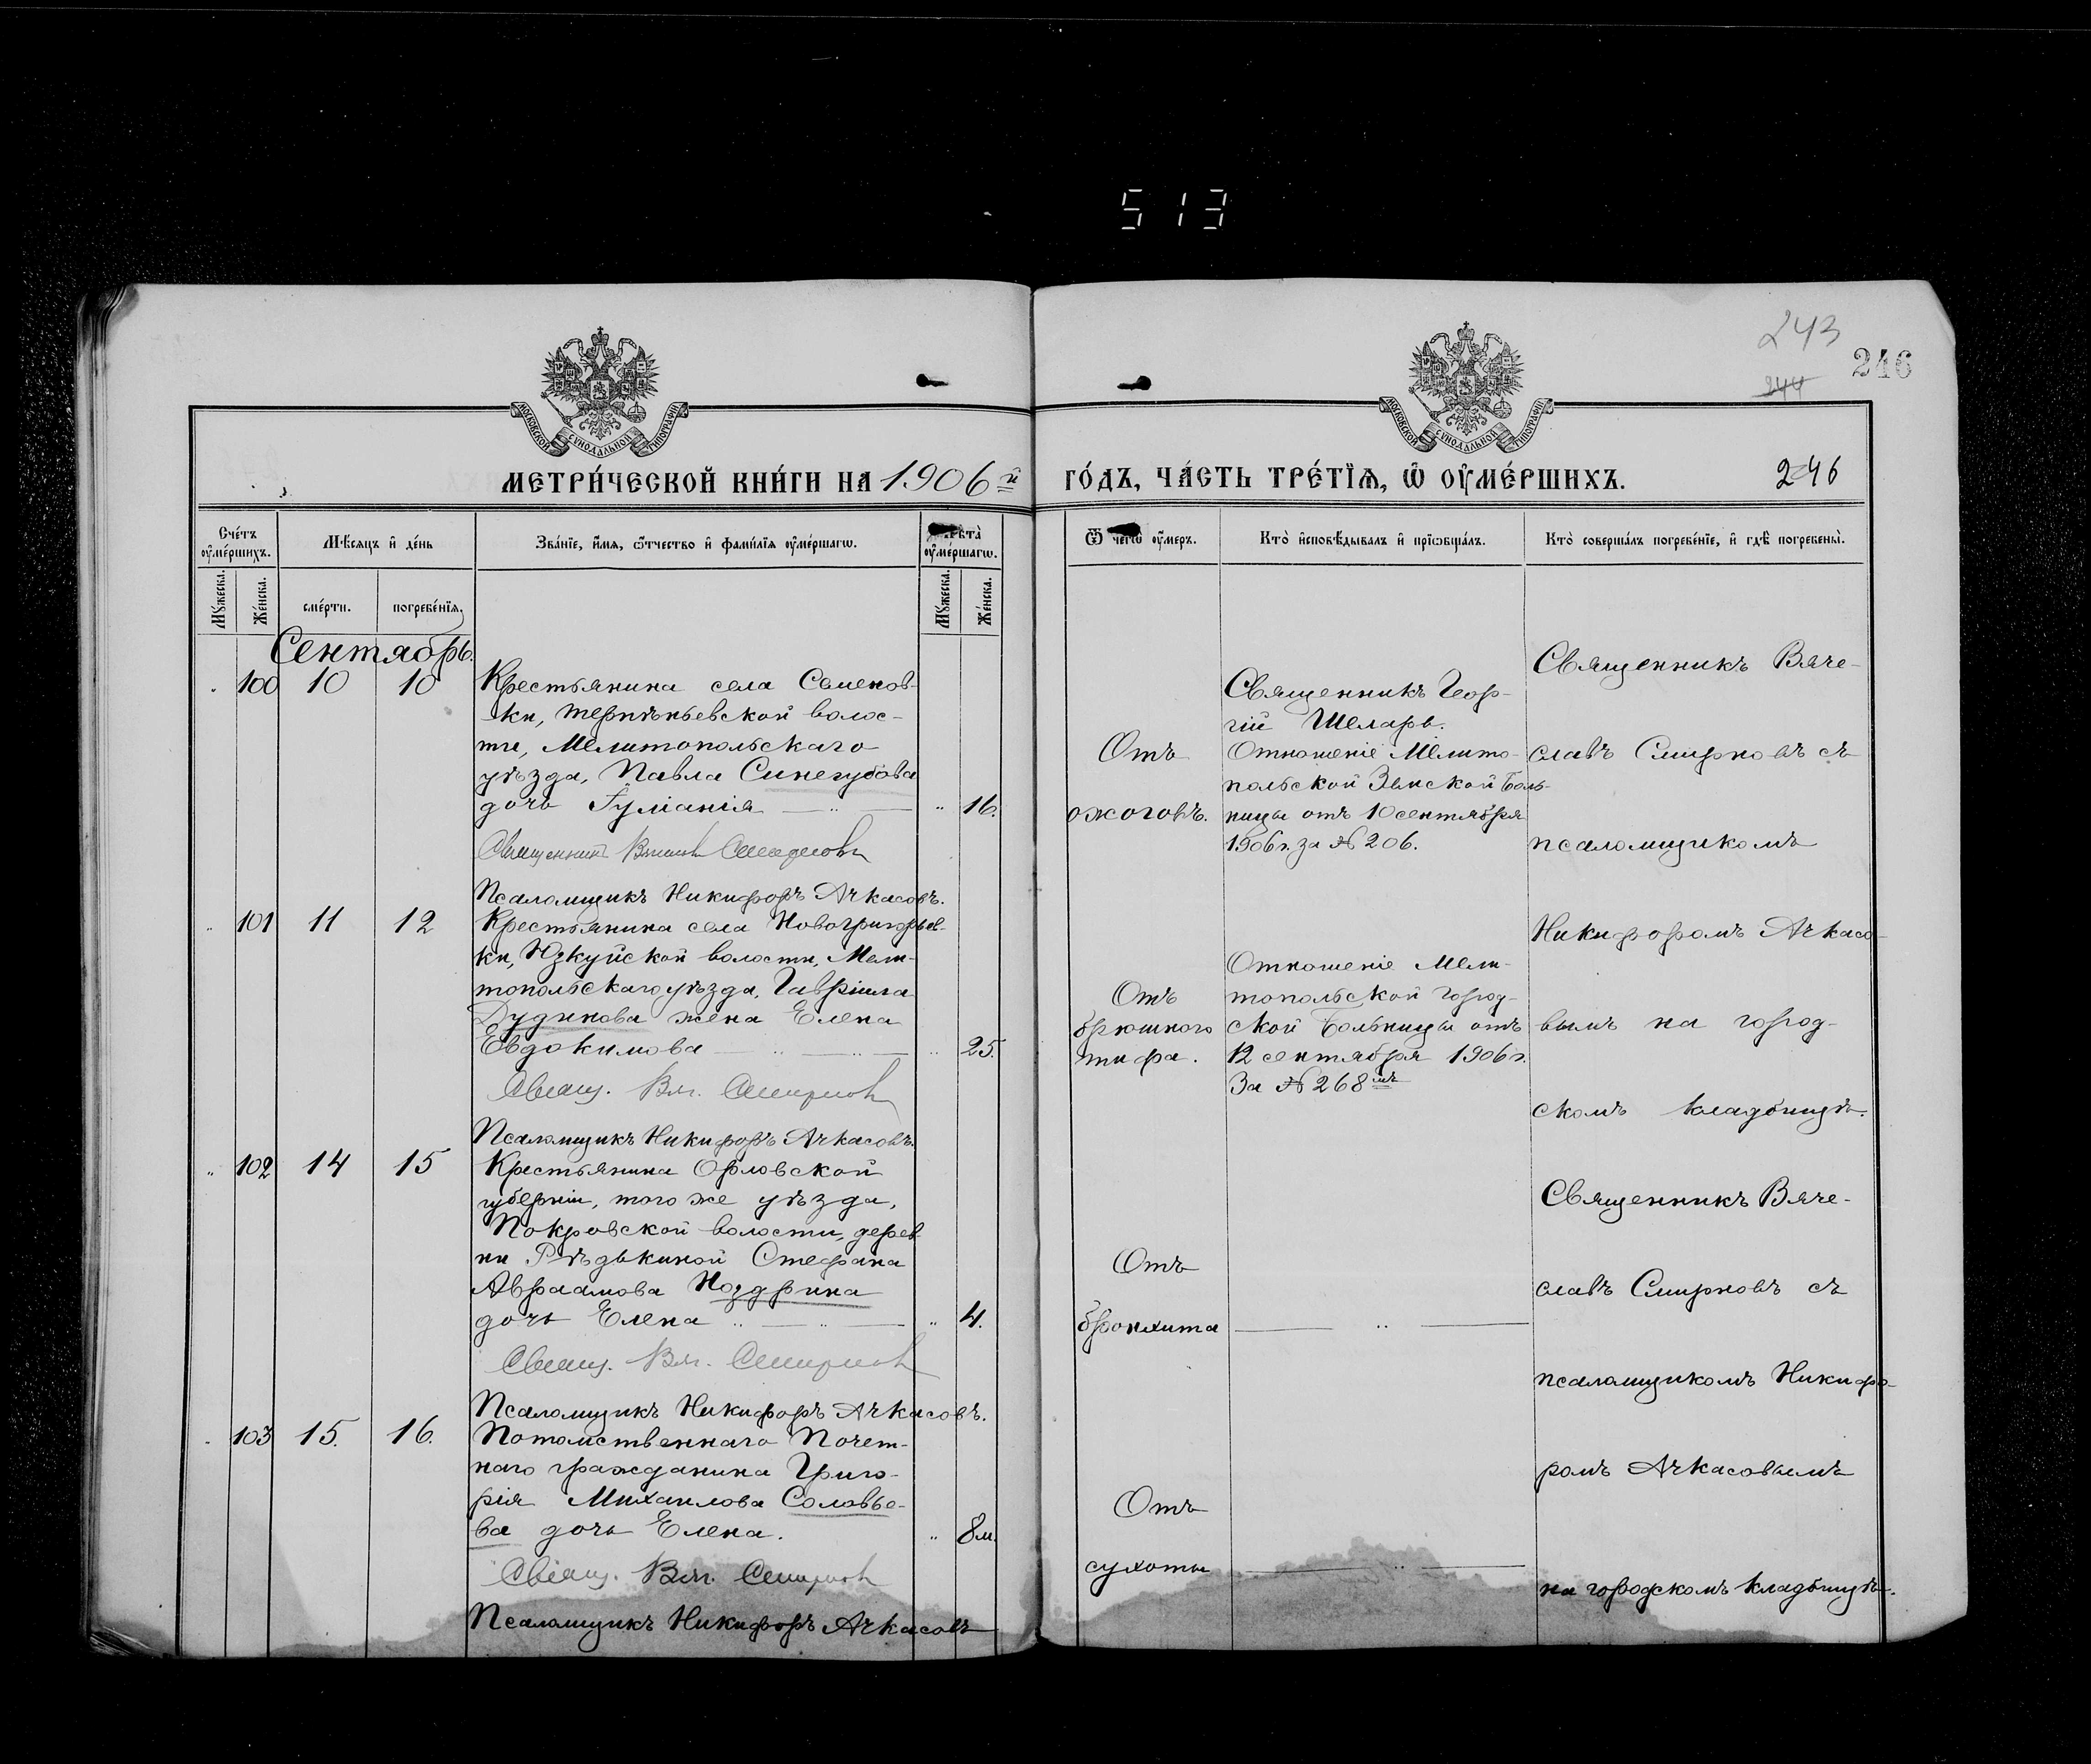 513
243
246
244
МОСКОВСКОЙ СѴНОДАЛЬНОЙ ТИПОГРАФІИ
МОСКОВСКОЙ СѴНОДАЛЬНОЙ ТИПОГРАФІИ
МЕТРИ́ЧЕСКОЙ КНИ́ГИ НА 1906й ГО́ДЪ, ЧА́СТЬ ТРЕ́ТЇѦ, Ѡ҆ ОУ҆МЕ́РШИХЪ.
246
Сче́тъ оу҆ме́ршихъ.
Мѣ́сяцъ и҆ де́нь
Зва́нїе, и҆́мя, ѻ҆́тчество и҆ фами́лїя оу҆ме́ршагѡ.
Лѣ̀та оу҆ме́ршагѡ.
Ѿ чегѡ̀ оу҆́меръ.
Кто̀ и҆сповѣ́дывалъ и҆ прїѡбща́лъ.
Кто̀ соверша́лъ погребе́нїе, и҆ гдѣ̀ погребены̀.
Му́жеска.
Же́нска.
сме́рти.
погребе́нїя.
Му́жеска.
Же́нска.
Сентябрь.
100 10 10
Крестьянина села Семенов-
ки, Терпѣньевской волос-
ти, Мелитопольскаго
уѣзда, Павла Синегубова
дочь Іуліанія
" 16.
Священникъ Вячеславъ Смирновъ
Псаломщикъ Никифоръ Ачкасовъ.
Отъ
ожоговъ.
Священникъ Геор-
гій Шеларь.
Отношеніе Мелито-
польской Земской Боль-
ницы отъ 10 сентября
1906 г. за № 206.
Священникъ Вяче-
славъ Смирновъ съ
псаломщикомъ
Никифоромъ Ачкасо-
вымъ на город-
скомъ кладбищѣ.
" 101 11 12
Крестьянина села Новогригорьев-
ки, Юзкуйской волости, Мели-
топольскаго уѣзда, Гавріила
Дудникова жена Елена
Евдокимова
" 25.
Свящ. Вяч. Смирновъ
Псаломщикъ Никифоръ Ачкасовъ.
Отъ
брюшного
тифа.
Отношеніе Мели-
топольской Город-
ской Больницы отъ
12 сентября 1906 г.
За № 268мъ
" 102 14 15
Крестьянина Орловской
губерніи, того же уѣзда,
Покровской волости, дерев-
ни Рѣдькиной Стефана
Авраамова Ноздрина
дочь Елена
" 4.
Свящ. Вяч. Смирновъ
Псаломщикъ Никифоръ Ачкасовъ.
Отъ
бронхита
Священникъ Вяче-
славъ Смирновъ съ
псаломщикомъ Никифо-
ромъ Ачкасовымъ
на городскомъ кладбищѣ.
103 15. 16.
Потомственнаго Почет-
наго гражданина Григо-
рія Михаилова Соловье-
ва дочь Елена.
" 8м.
Свящ. Вяч. Смирновъ
Псаломщикъ Никифоръ Ачкасовъ
Отъ
сухоты